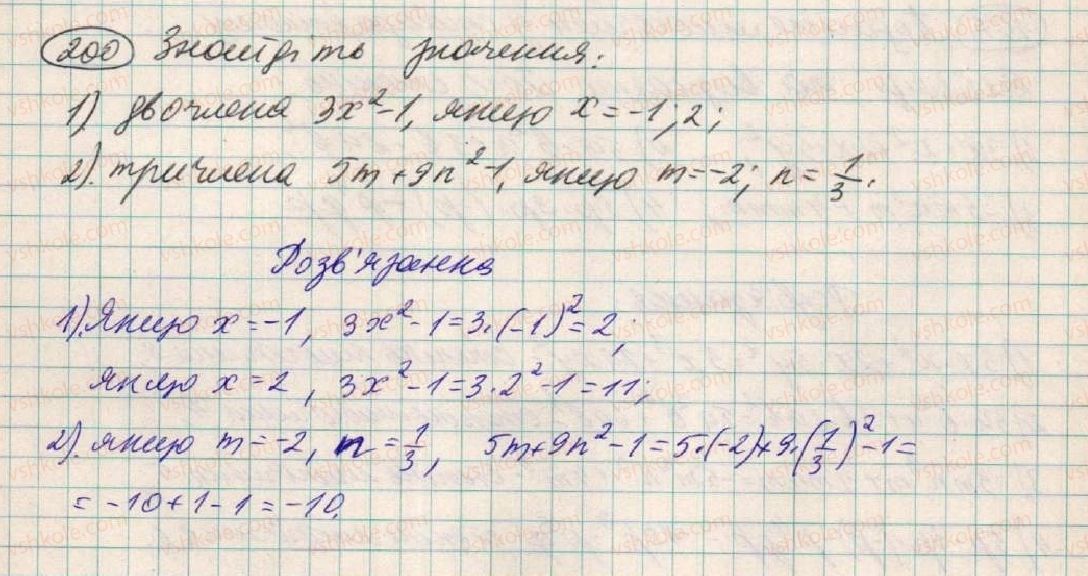 200 Знайдіть значення:
1) двочлена 3x²-1, якщо x = -1; 2;
2). тричлена 5m+9n²-1, якщо m=-2; n = 1/3.
Розв'язання
1). Якщо x = -1, 3x² - 1 = 3·(-1)² = 2;
якщо x = 2, 3x² - 1 = 3·2² - 1 = 11;
2). якщо m = -2, n = 1/3, 5m+9n² - 1 = 5·(-2)+9·(1/3)² - 1 =
= -10 + 1 - 1 = -10.